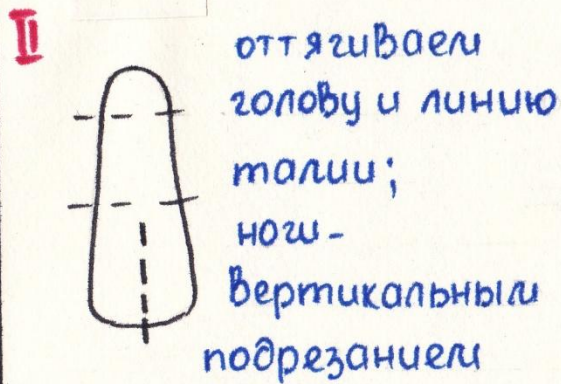 II
оттягиваем
голову и линию
талии;
ноги-
вертикальным
подрезанием